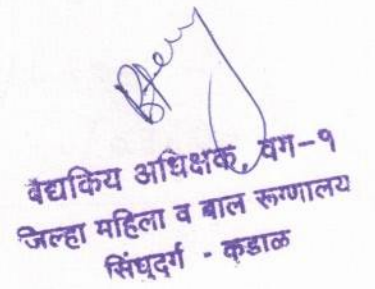 वैद्यकिय अधिक्षक, वर्ग-१
जिल्हा महिला व बाल रूग्णालय
सिंधुदुर्ग - कुडाळ